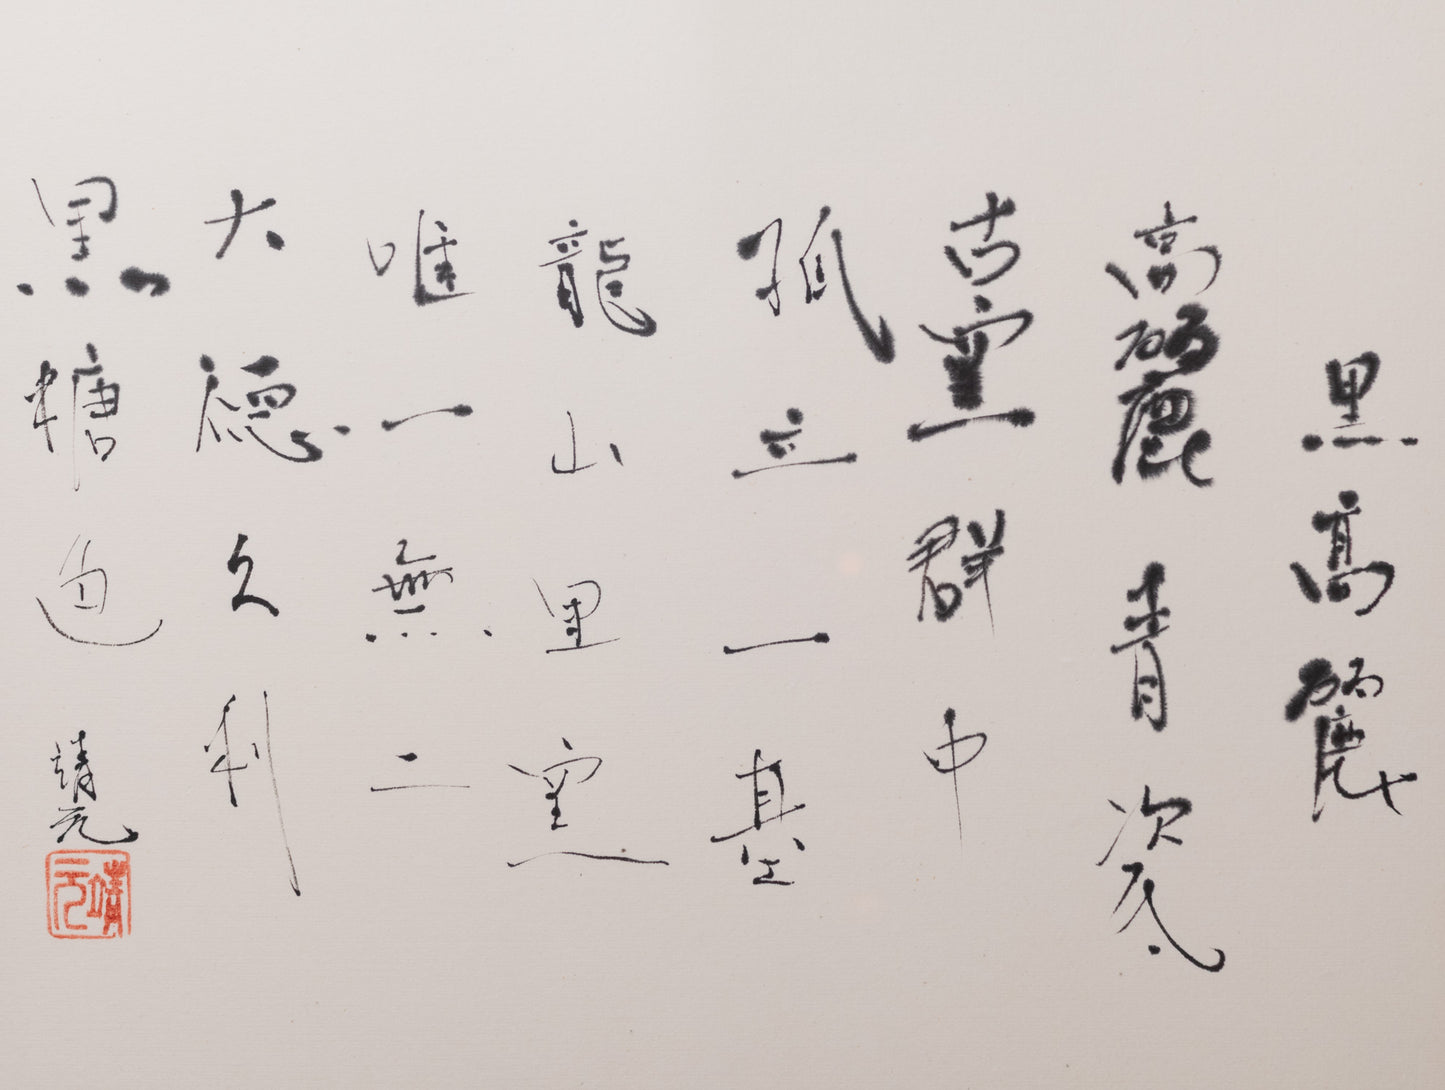 黒高麗
高麗青瓷
古窯群中
孤立一基
龍山里窯
唯一無二
大徳久利
黒糖迫 靖元
靖元